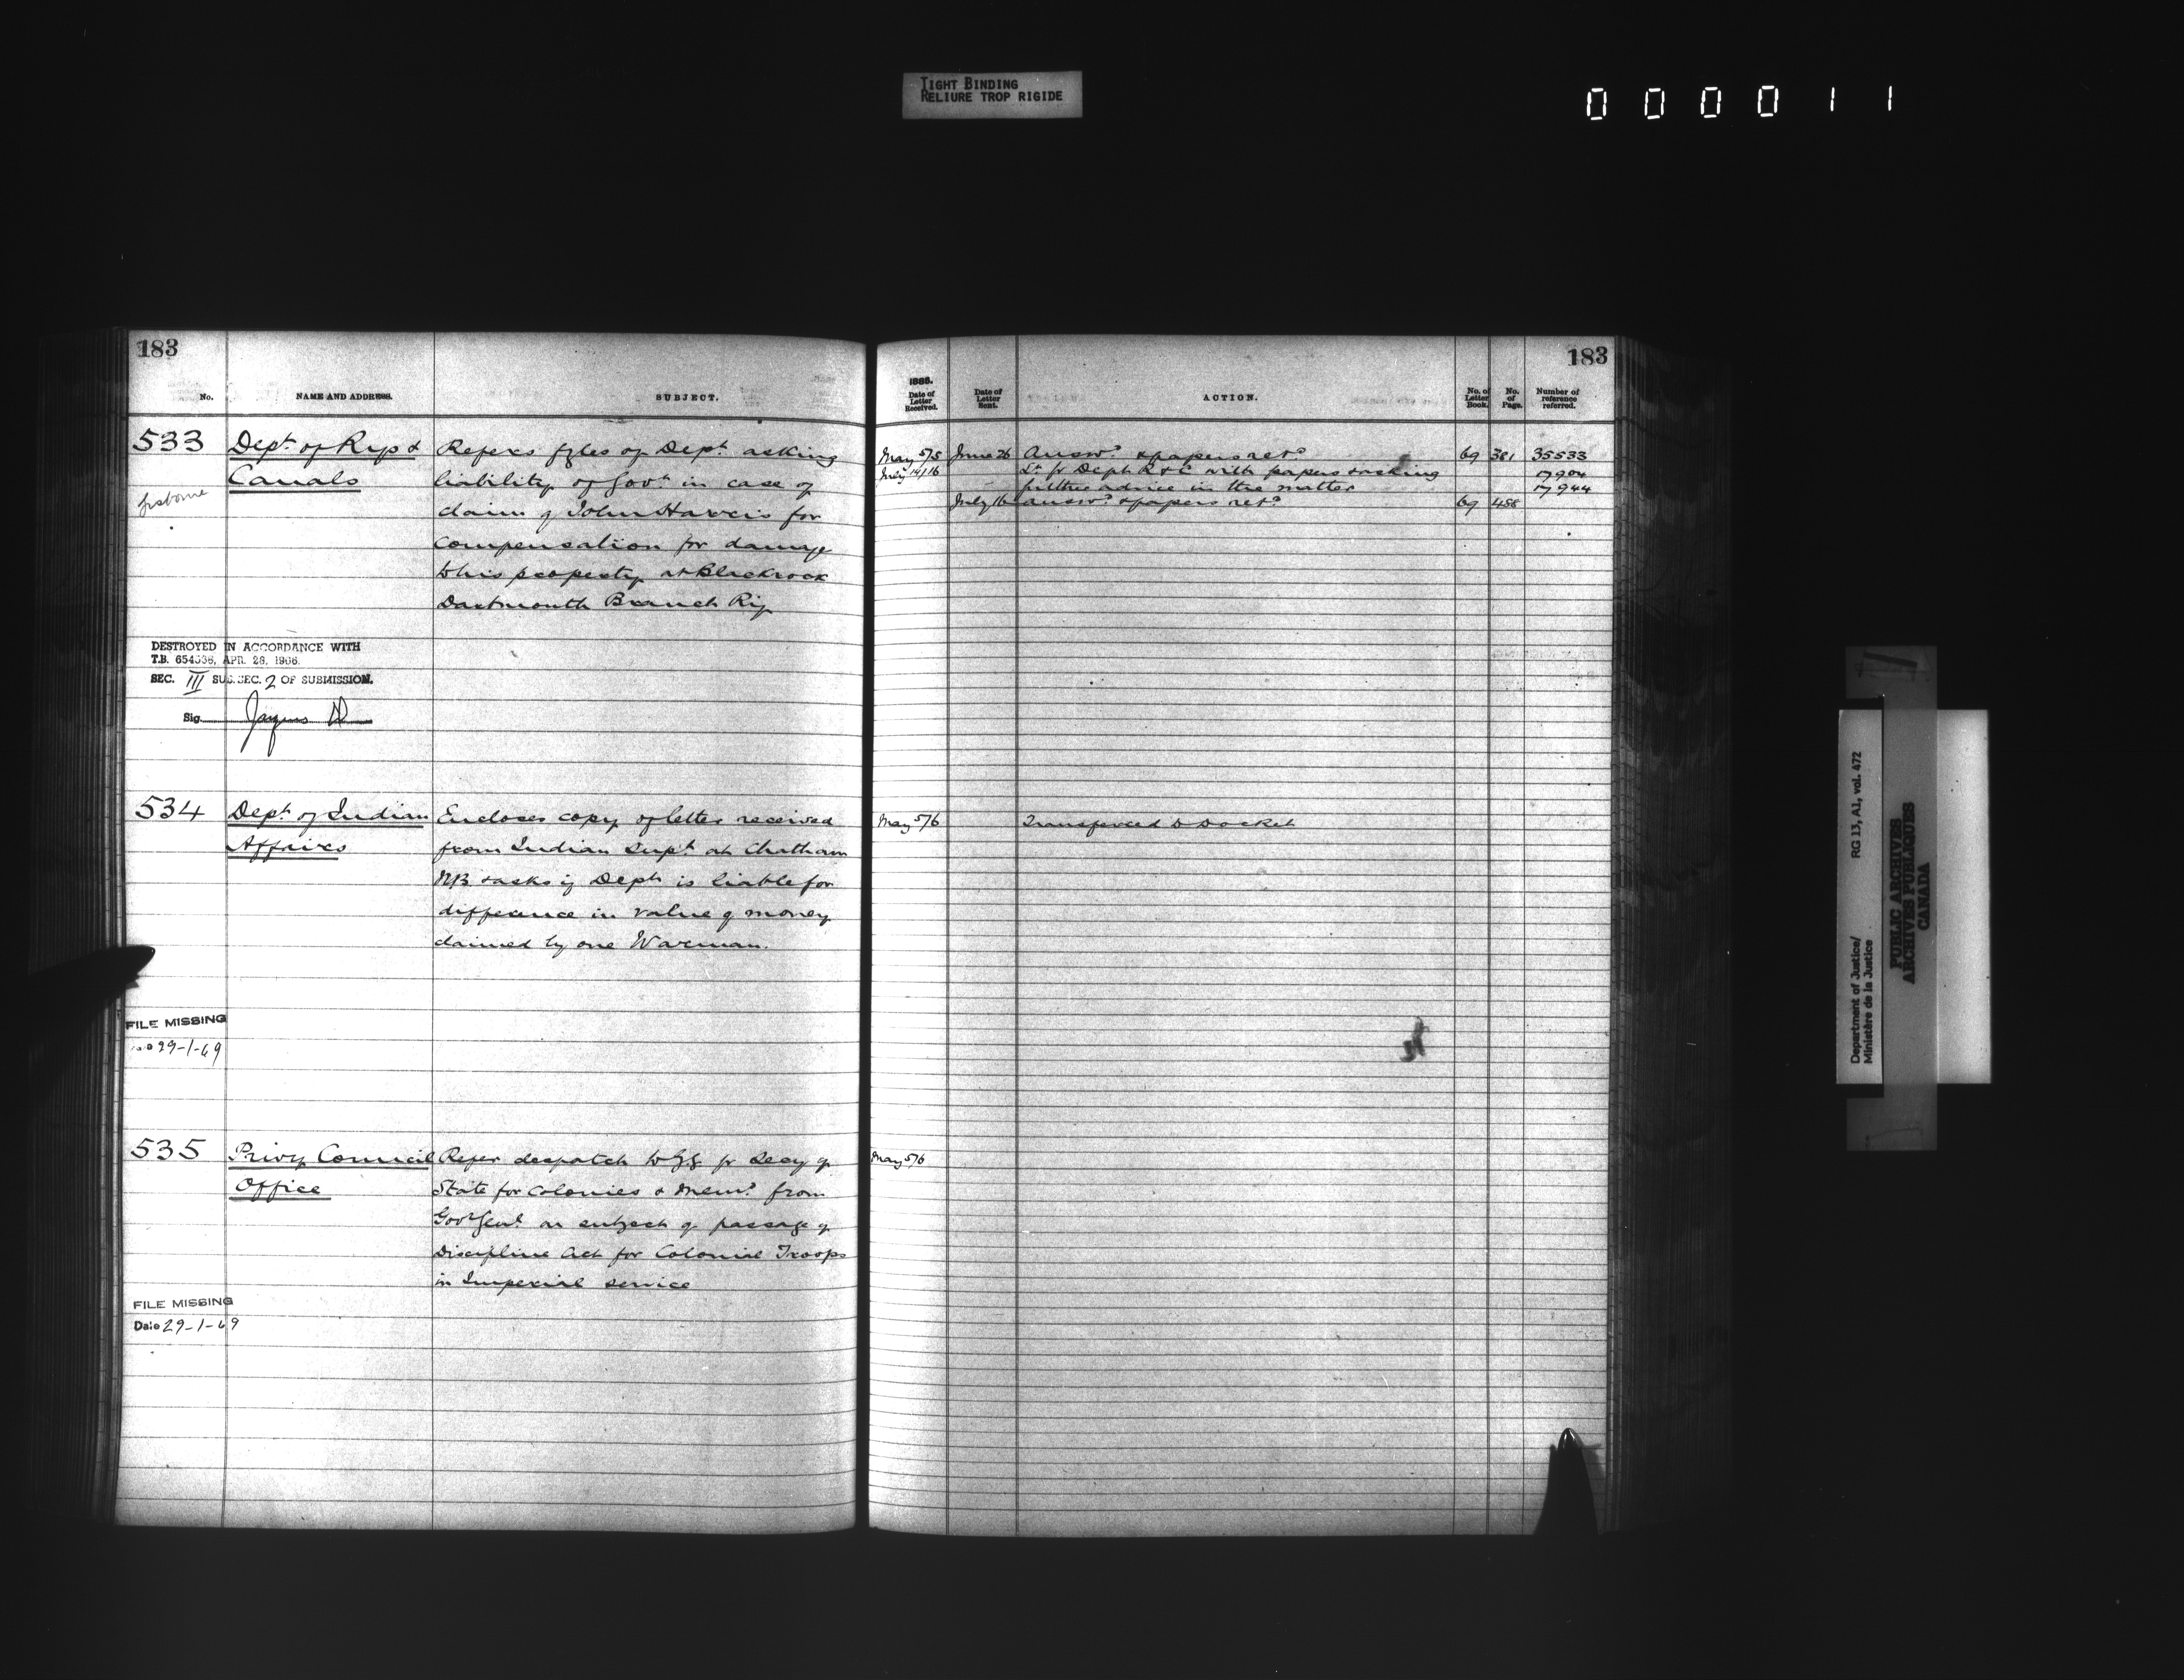 TIGHT BINDING
RELIURE TROP RIGIDE
000011
183
No.
NAME AND ADDRESS.
SUBJECT.
533
Dept of Rys &
Canals
Refers fyles of Dept. asking
liability of Govt in case of
claim of John Harris for
compensation for damage
to his property at Blackrock
Dartmouth Branch Ry
DESTROYED IN ACCORDANCE WITH
T.B. 654538, APR. 28, 1966.
SEC. III SUB.SEC. 2 OF SUBMISSION.
Sig.
534
Dept of Indian
Affairs
Encloses copy of letter received
from Indian Supt. at Chatham
NB & asks if Dept is liable for
difference in value of money
claimed by one Warman.
FILE MISSING
29-1-69
535
Privy Council
Office
Refer despatch to GG fr Secy of
State for Colonies & Memo from
Govr Genl on subject of passage of
Discipline Act for Colonial Troops
in Imperial service
FILE MISSING
Date 29-1-69
183
Date of Letter Received.
Date of Letter Sent.
ACTION.
No. of Letter Book.
No. of Page.
Number of reference referred.
May 5/5 June 26 Answd & papers retd 69 381 35533
July 14/16 Lr fr Dept R & C with papers & asking 17904
further advice in the matter 17944
July 16 answd & papers retd 69 488
May 5/6 Transferred to Docket
May 5/6
Department of Justice/
Ministère de la Justice
RG 13, A1, vol. 472
PUBLIC ARCHIVES
ARCHIVES PUBLIQUES
CANADA